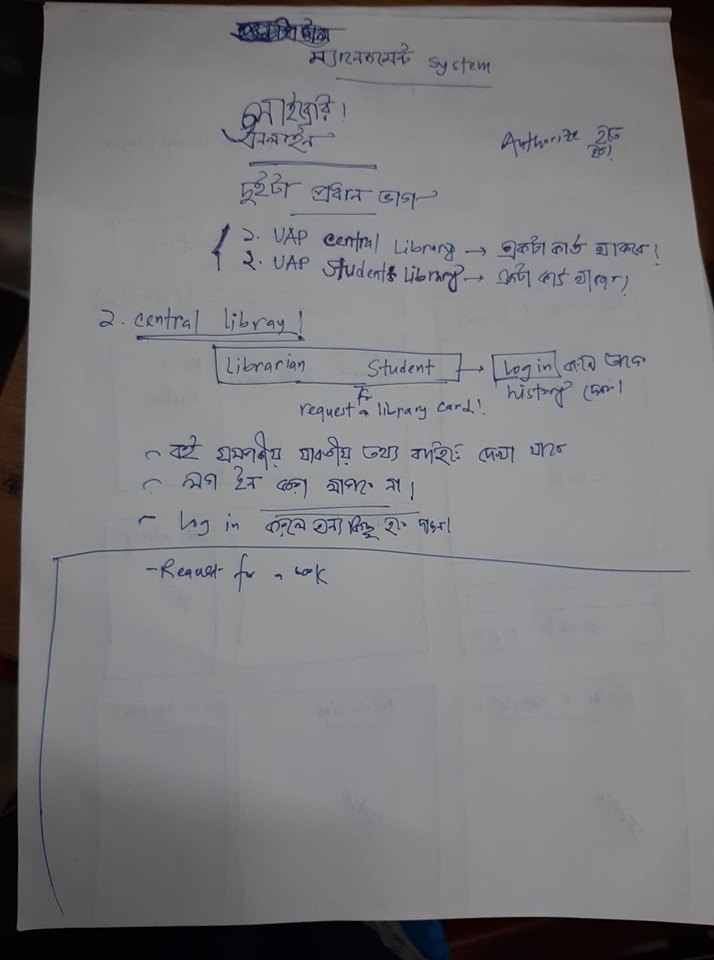 ম্যানেজমেন্ট System
লাইব্রেরি!
অনলাইন
Authorize হতে হবে!
দুইটা প্রধান ভাগ
১. UAP Central Library → একটা কার্ড থাকবে!
২. UAP Students Library → একটা কার্ড থাকবে!
2. Central library!
Librarian Student → Log in করলে তাদের
history দেখা
request library card!
বই সম্পর্কীয় যাবতীয় তথ্য বাইরে দেখা যাবে
লগ ইন করা লাগবে না!
Log in করলে অন্য কিছু
-Request for a book